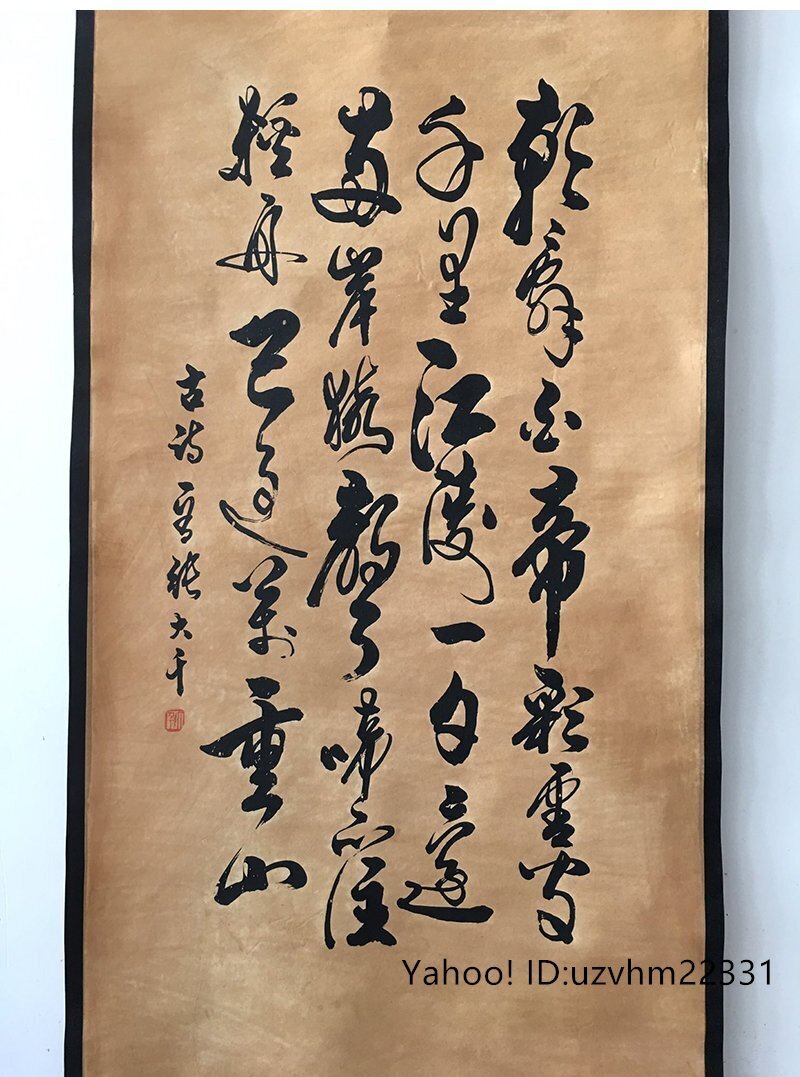 朝辭白帝彩雲間
千里江陵一日還
兩岸猿聲啼不住
輕舟已過萬重山
古詩一首張大千
Yahoo! ID:uzvhm22331